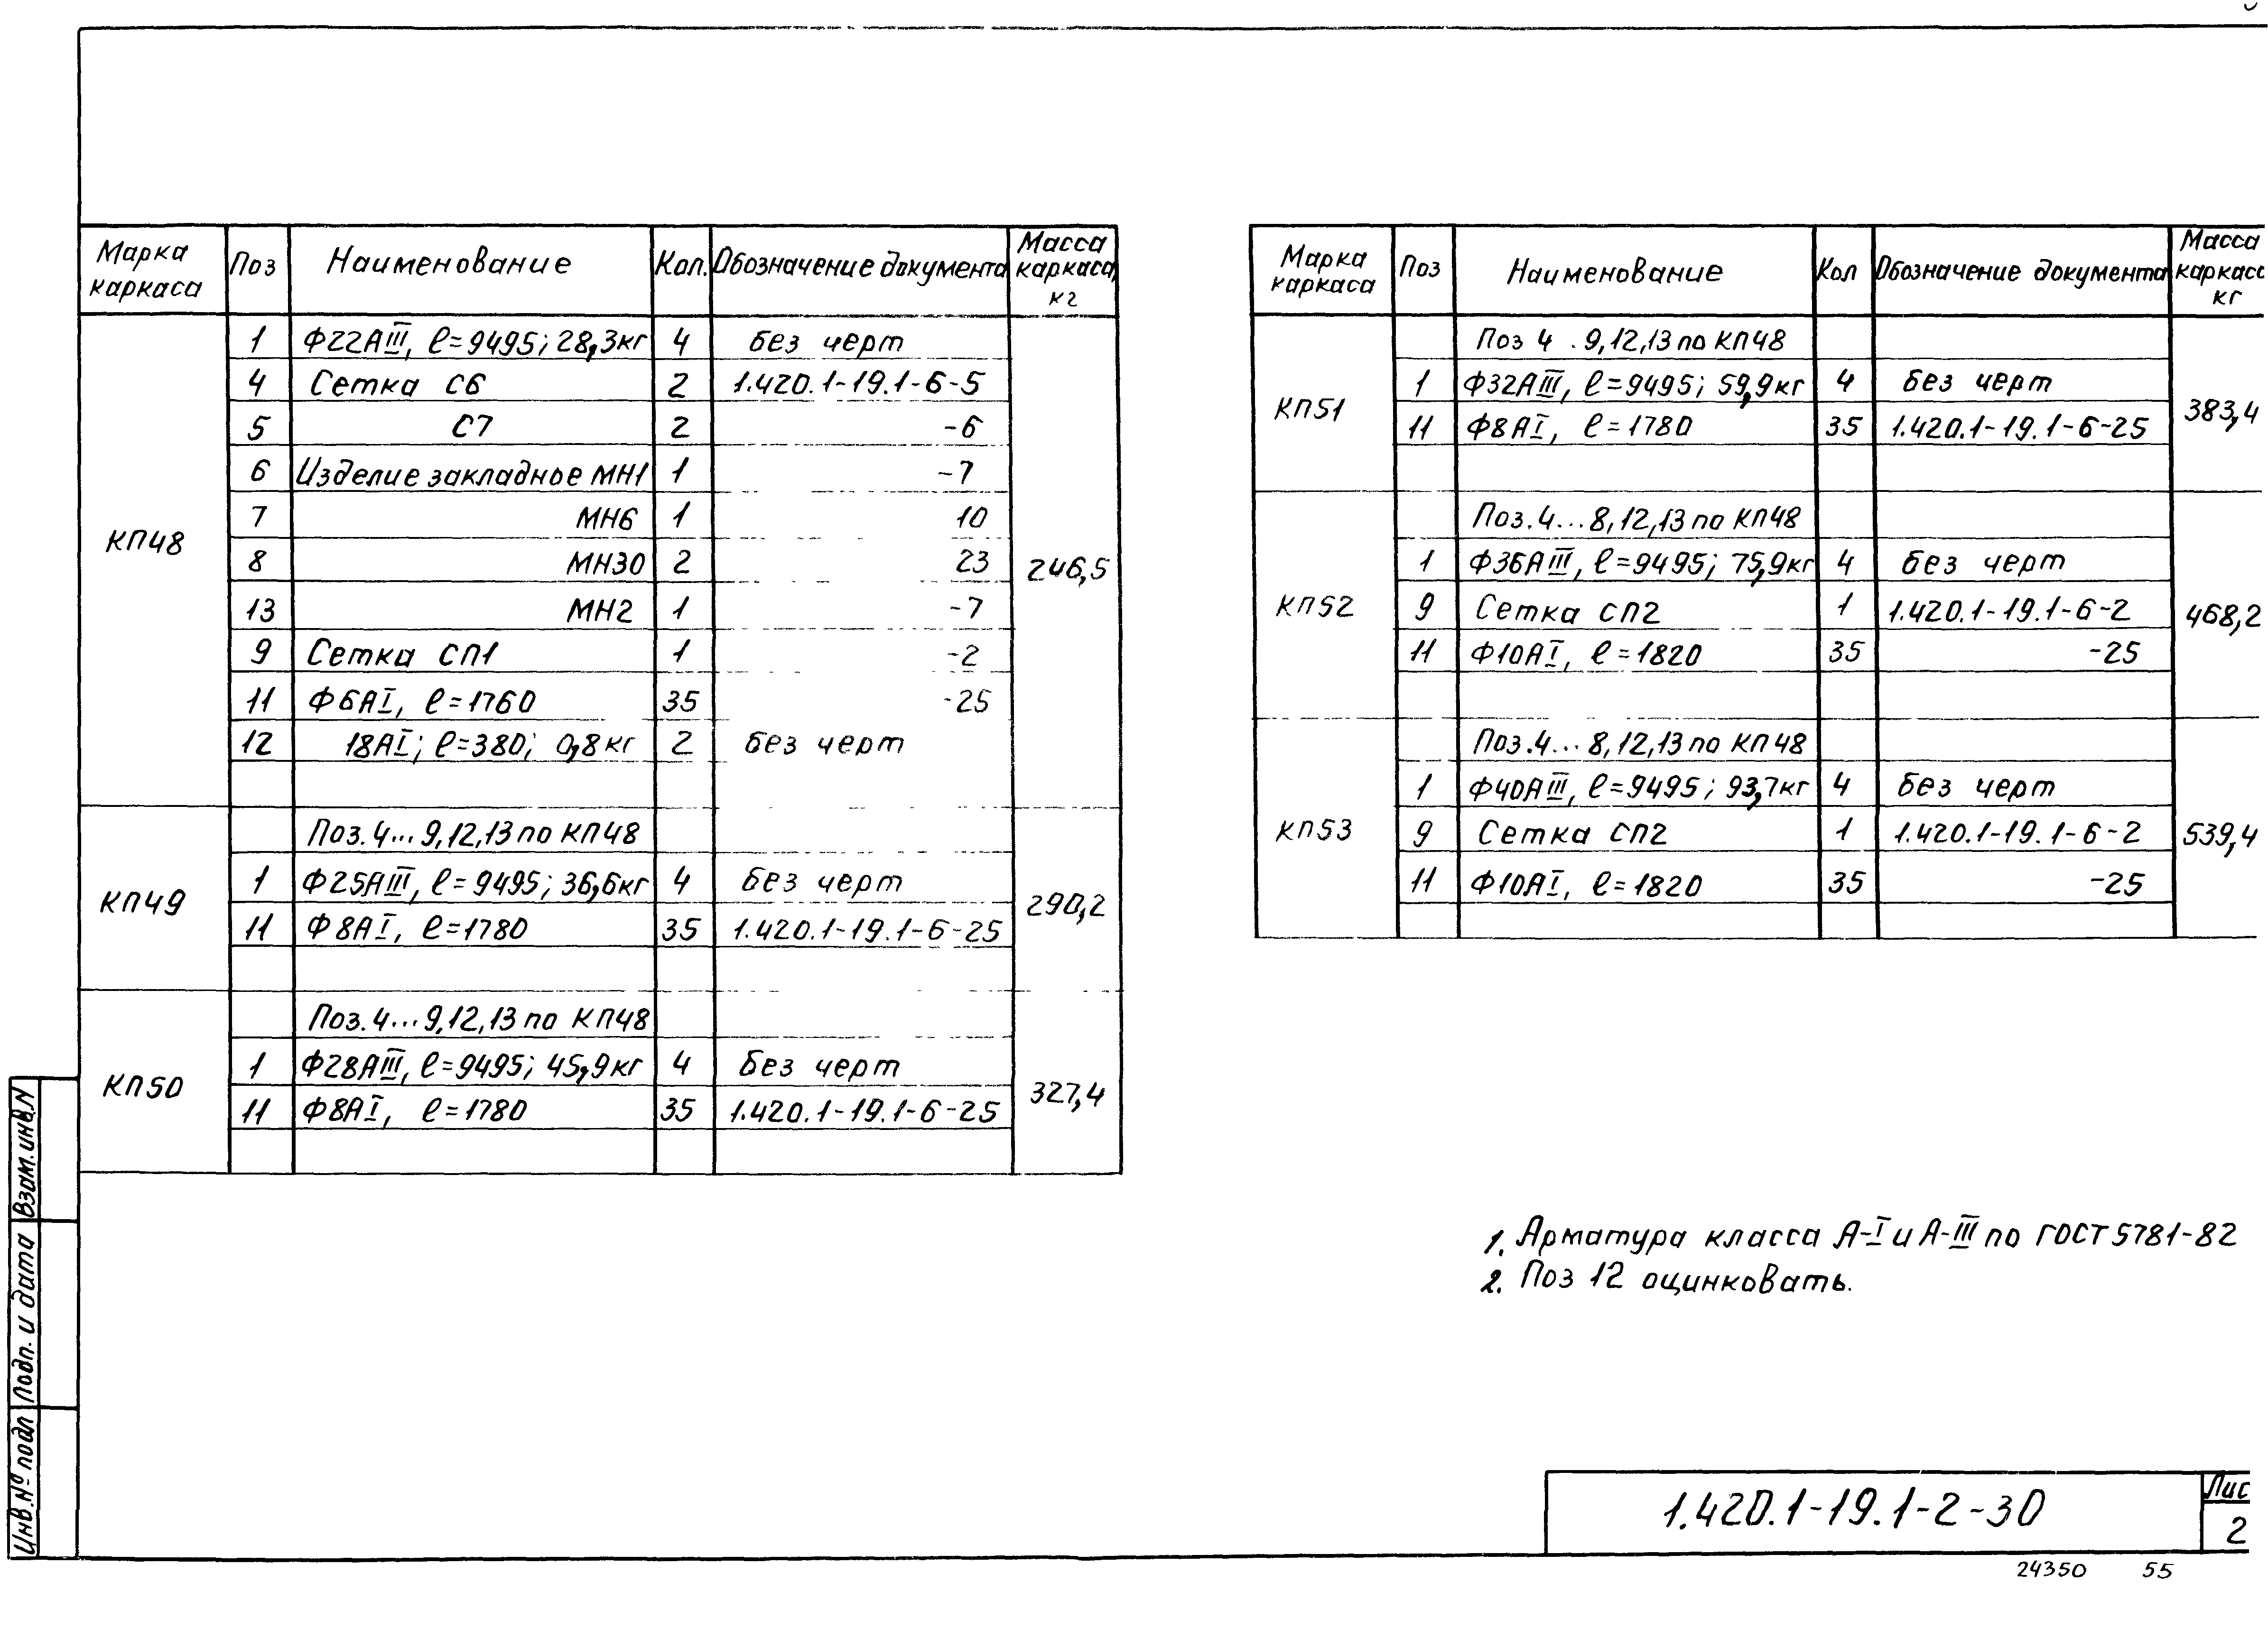 Марка каркаса Поз Наименование Кол. Обозначение документа Масса каркаса, кг
КП48 246,5
1 Ф22АIII, ℓ=9495; 28,3кг 4 без черт
4 Сетка С6 2 1.420.1-19.1-6-5
5 С7 2 -6
6 Изделие закладное МН1 1 -7
7 МН6 1 10
8 МН30 2 23
13 МН2 1 -7
9 Сетка СП1 1 -2
11 Ф6АI, ℓ=1760 35 -25
12 18АI; ℓ=380; 0,8кг 2 без черт
КП49 290,2
Поз.4...9,12,13 по КП48
1 Ф25АIII, ℓ=9495; 36,6кг 4 без черт
11 Ф8АI, ℓ=1780 35 1.420.1-19.1-6-25
КП50 327,4
Поз.4...9,12,13 по КП48
1 Ф28АIII, ℓ=9495; 45,9кг 4 без черт
11 Ф8АI, ℓ=1780 35 1.420.1-19.1-6-25
Марка каркаса Поз Наименование Кол Обозначение документа Масса каркасс кг
КП51 383,4
Поз 4 . 9,12,13 по КП48
1 Ф32АIII, ℓ=9495; 59,9кг 4 без черт
11 Ф8АI, ℓ=1780 35 1.420.1-19.1-6-25
КП52 468,2
Поз.4...8,12,13 по КП48
1 Ф36АIII, ℓ=9495; 75,9кг 4 без черт
9 Сетка СП2 1 1.420.1-19.1-6-2
11 Ф10АI, ℓ=1820 35 -25
КП53 539,4
Поз.4...8,12,13 по КП48
1 Ф40АIII, ℓ=9495; 93,7кг 4 без черт
9 Сетка СП2 1 1.420.1-19.1-6-2
11 Ф10АI, ℓ=1820 35 -25
1. Арматура класса А-I и А-III по ГОСТ 5781-82
2. Поз 12 оцинковать.
Инв.№ подл Подп. и дата Взам.инв.N
1.420.1-19.1-2-30
Лис
2
24350 55